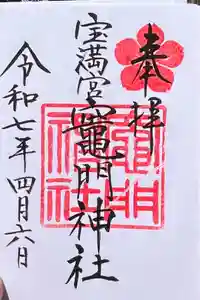 奉拝
宝満宮竈門神社
令和七年四月六日